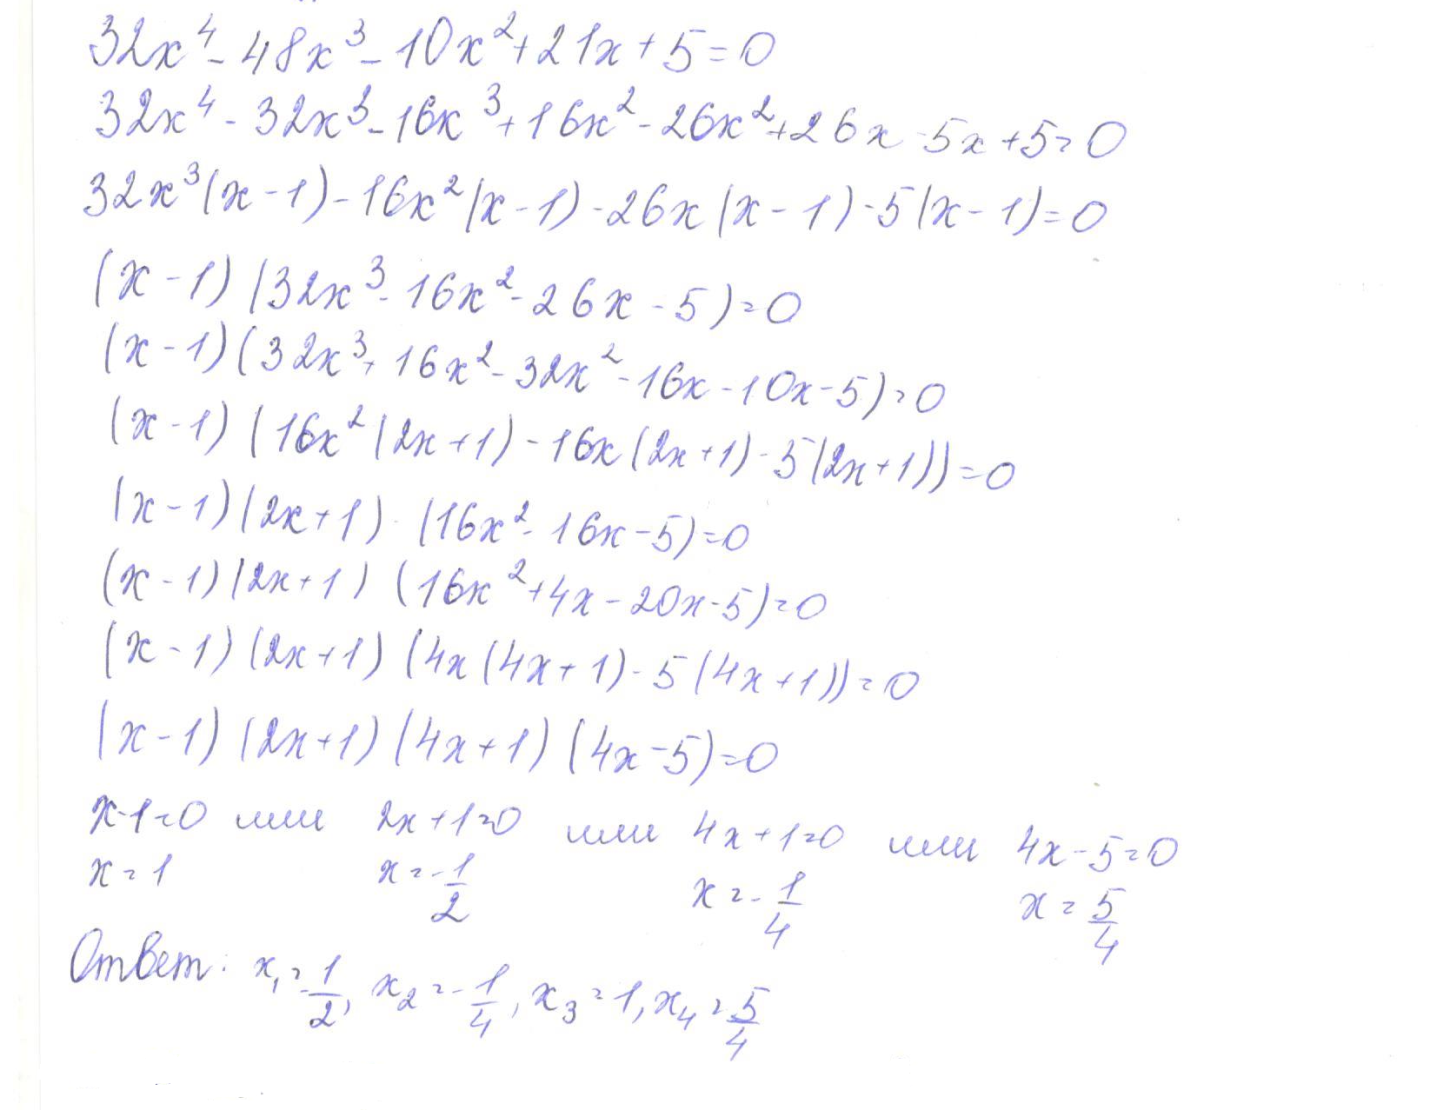 32x⁴ - 48x³ - 10x² + 21x + 5 = 0
32x⁴ - 32x³ - 16x³ + 16x² - 26x² + 26x - 5x + 5 = 0
32x³(x - 1) - 16x²(x - 1) - 26x(x - 1) - 5(x - 1) = 0
(x - 1)(32x³ - 16x² - 26x - 5) = 0
(x - 1)(32x³ + 16x² - 32x² - 16x - 10x - 5) = 0
(x - 1)(16x²(2x + 1) - 16x(2x + 1) - 5(2x + 1)) = 0
(x - 1)(2x + 1) · (16x² - 16x - 5) = 0
(x - 1)(2x + 1)(16x² + 4x - 20x - 5) = 0
(x - 1)(2x + 1)(4x(4x + 1) - 5(4x + 1)) = 0
(x - 1)(2x + 1)(4x + 1)(4x - 5) = 0
x - 1 = 0 или 2x + 1 = 0 или 4x + 1 = 0 или 4x - 5 = 0
x = 1 x = -1/2 x = -1/4 x = 5/4
Ответ: x₁ = -1/2, x₂ = -1/4, x₃ = 1, x₄ = 5/4